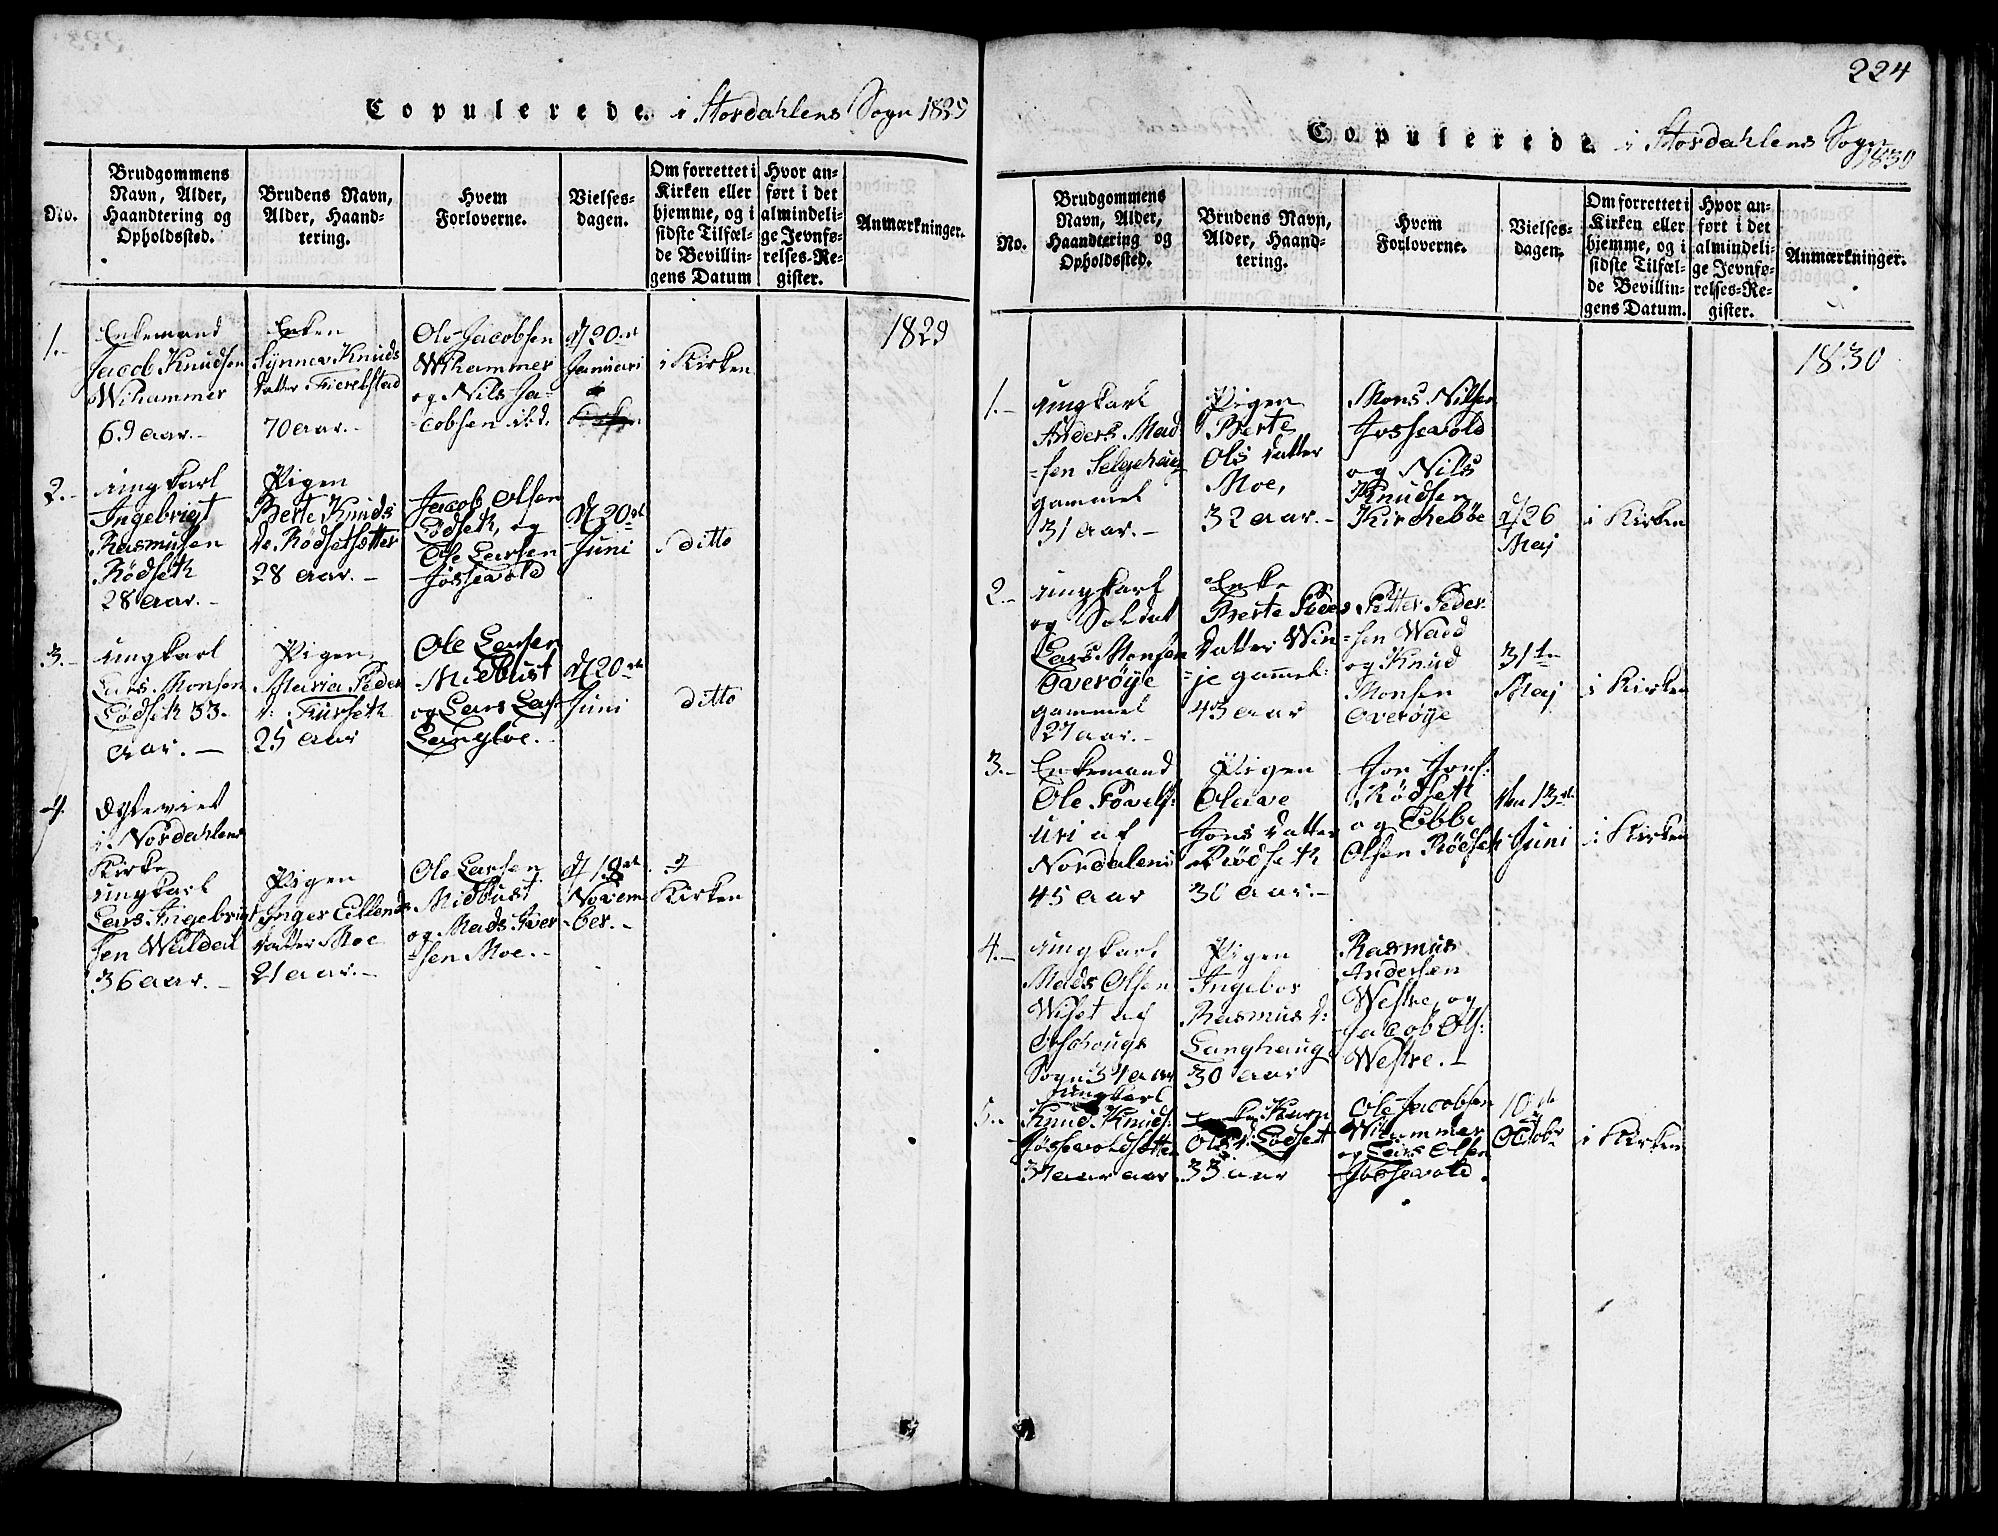 Copulerede i Stordahlens Sogn 1829
No.
Brudgommens
Navn, Alder,
Haandtering og
Opholdssted.
Brudens Navn,
Alder, Haand-
tering.
Hvem
Forloverne.
Vielses-
dagen.
Om forrettet i
Kirken eller
hjemme, og i
sidste Tilfæl-
de Bevillin-
gens Datum
Hvor an-
ført i det
almindeli-
ge Jevnfø-
relses-Re-
gister.
Anmærkninger.
1829
1.-
Enkemand
Jacob Knudsen
Wihammer
69 aar.-
Enken
Synnev Knuds
datter
70 aar.-
Ole Jacobsen
Wihammer
og Nils Ja-
cobsen ibd.
d 20de
Januari
i Kirken
2.-
ungkarl
Ingebrigt
Rasmusen
Rødseth
28 aar.-
Pigen
Berte Knuds
Dr. Rødsetsætter
28 aar.-
Jacob Olsen
Lødseth, og
Ole Larsen
Jøssevold
d 20de
Juni
ditto
3.-
ungkarl
Lars Monsen
Lødseth 33
aar.-
Pigen
Maria Peder
d: Furseth
25 aar
Ole Larsen
Midbust
og Lars Lars
Langloe.-
d 20de
Juni
ditto
4.
Copeviet
i Nordahlens
Kirke
ungkarl
Lars Ingebrigt
sen Waldal
36 aar.-
Pigen
Inger Ellends
datter Moe
21 aar.-
Ole Larsen
Midbust
og Mads Iver
-sen Moe.-
d 18de
Novem
-ber.-
Kirken
224
Copulerede i Stordahlens Sogn
1830
No.
Brudgommens
Navn, Alder,
Haandtering og
Opholdssted.
Brudens Navn,
Alder, Haand-
tering.
Hvem
Forloverne.
Vielses-
dagen.
Om forrettet i
Kirken eller
hjemme, og i
sidste Tilfæl-
de Bevillin-
gens Datum.
Hvor an-
ført i det
almindeli-
ge Jevnfø-
relses-Re-
gister.
Anmærkninger.
1830
1.-
ungkarl
Anders Mad
-sen Selgehaug
gammel
31 aar.-
Pigen
Berte
Ols datter
Moe,
32 aar.-
Mons Nilsen
Jossevold
og Nils
Knudsen
Kirchebøe
d/26
Maj
i Kirken
2.-
ungkarl
og Soldat
Lars Monsen
Overøye
gammel
27 aar.-
Enke
Berte Peders
datter Win-
-je gammel:
43 aar
Petter Peder
-sen Waed
og Knud
Monsen
Overøye
31te
Maj
i Kirken
3.-
Enkemand
Ole Povels:
Uri af
Nordalens
45 aar
Pigen
Oluve
Jons datter
Rødseth
30 aar.-
Jon Jons:
Rødseth
og Ebbe
Olsen Rødseth
den 13de
Juni
i Kirken
4.-
ungkarl
Mads Olsen
Wiset af
Ørschougs
Sogn 34 aar
Pigen
Ingebor
Rasmus d:
Langhaug
30 aar
Rasmus
Andersen
Westre, og
Jacob Ols:
Westre.
5.-
Jungkarl
Knud Knuds:
Jøssevoldsætter
31 aar aar
Karn
Ols d: Lødset
33 aar
Ole Jacobsen
Wihammer
og Lars Olsen
Jossevold.
10de
Octobr
i Kirken